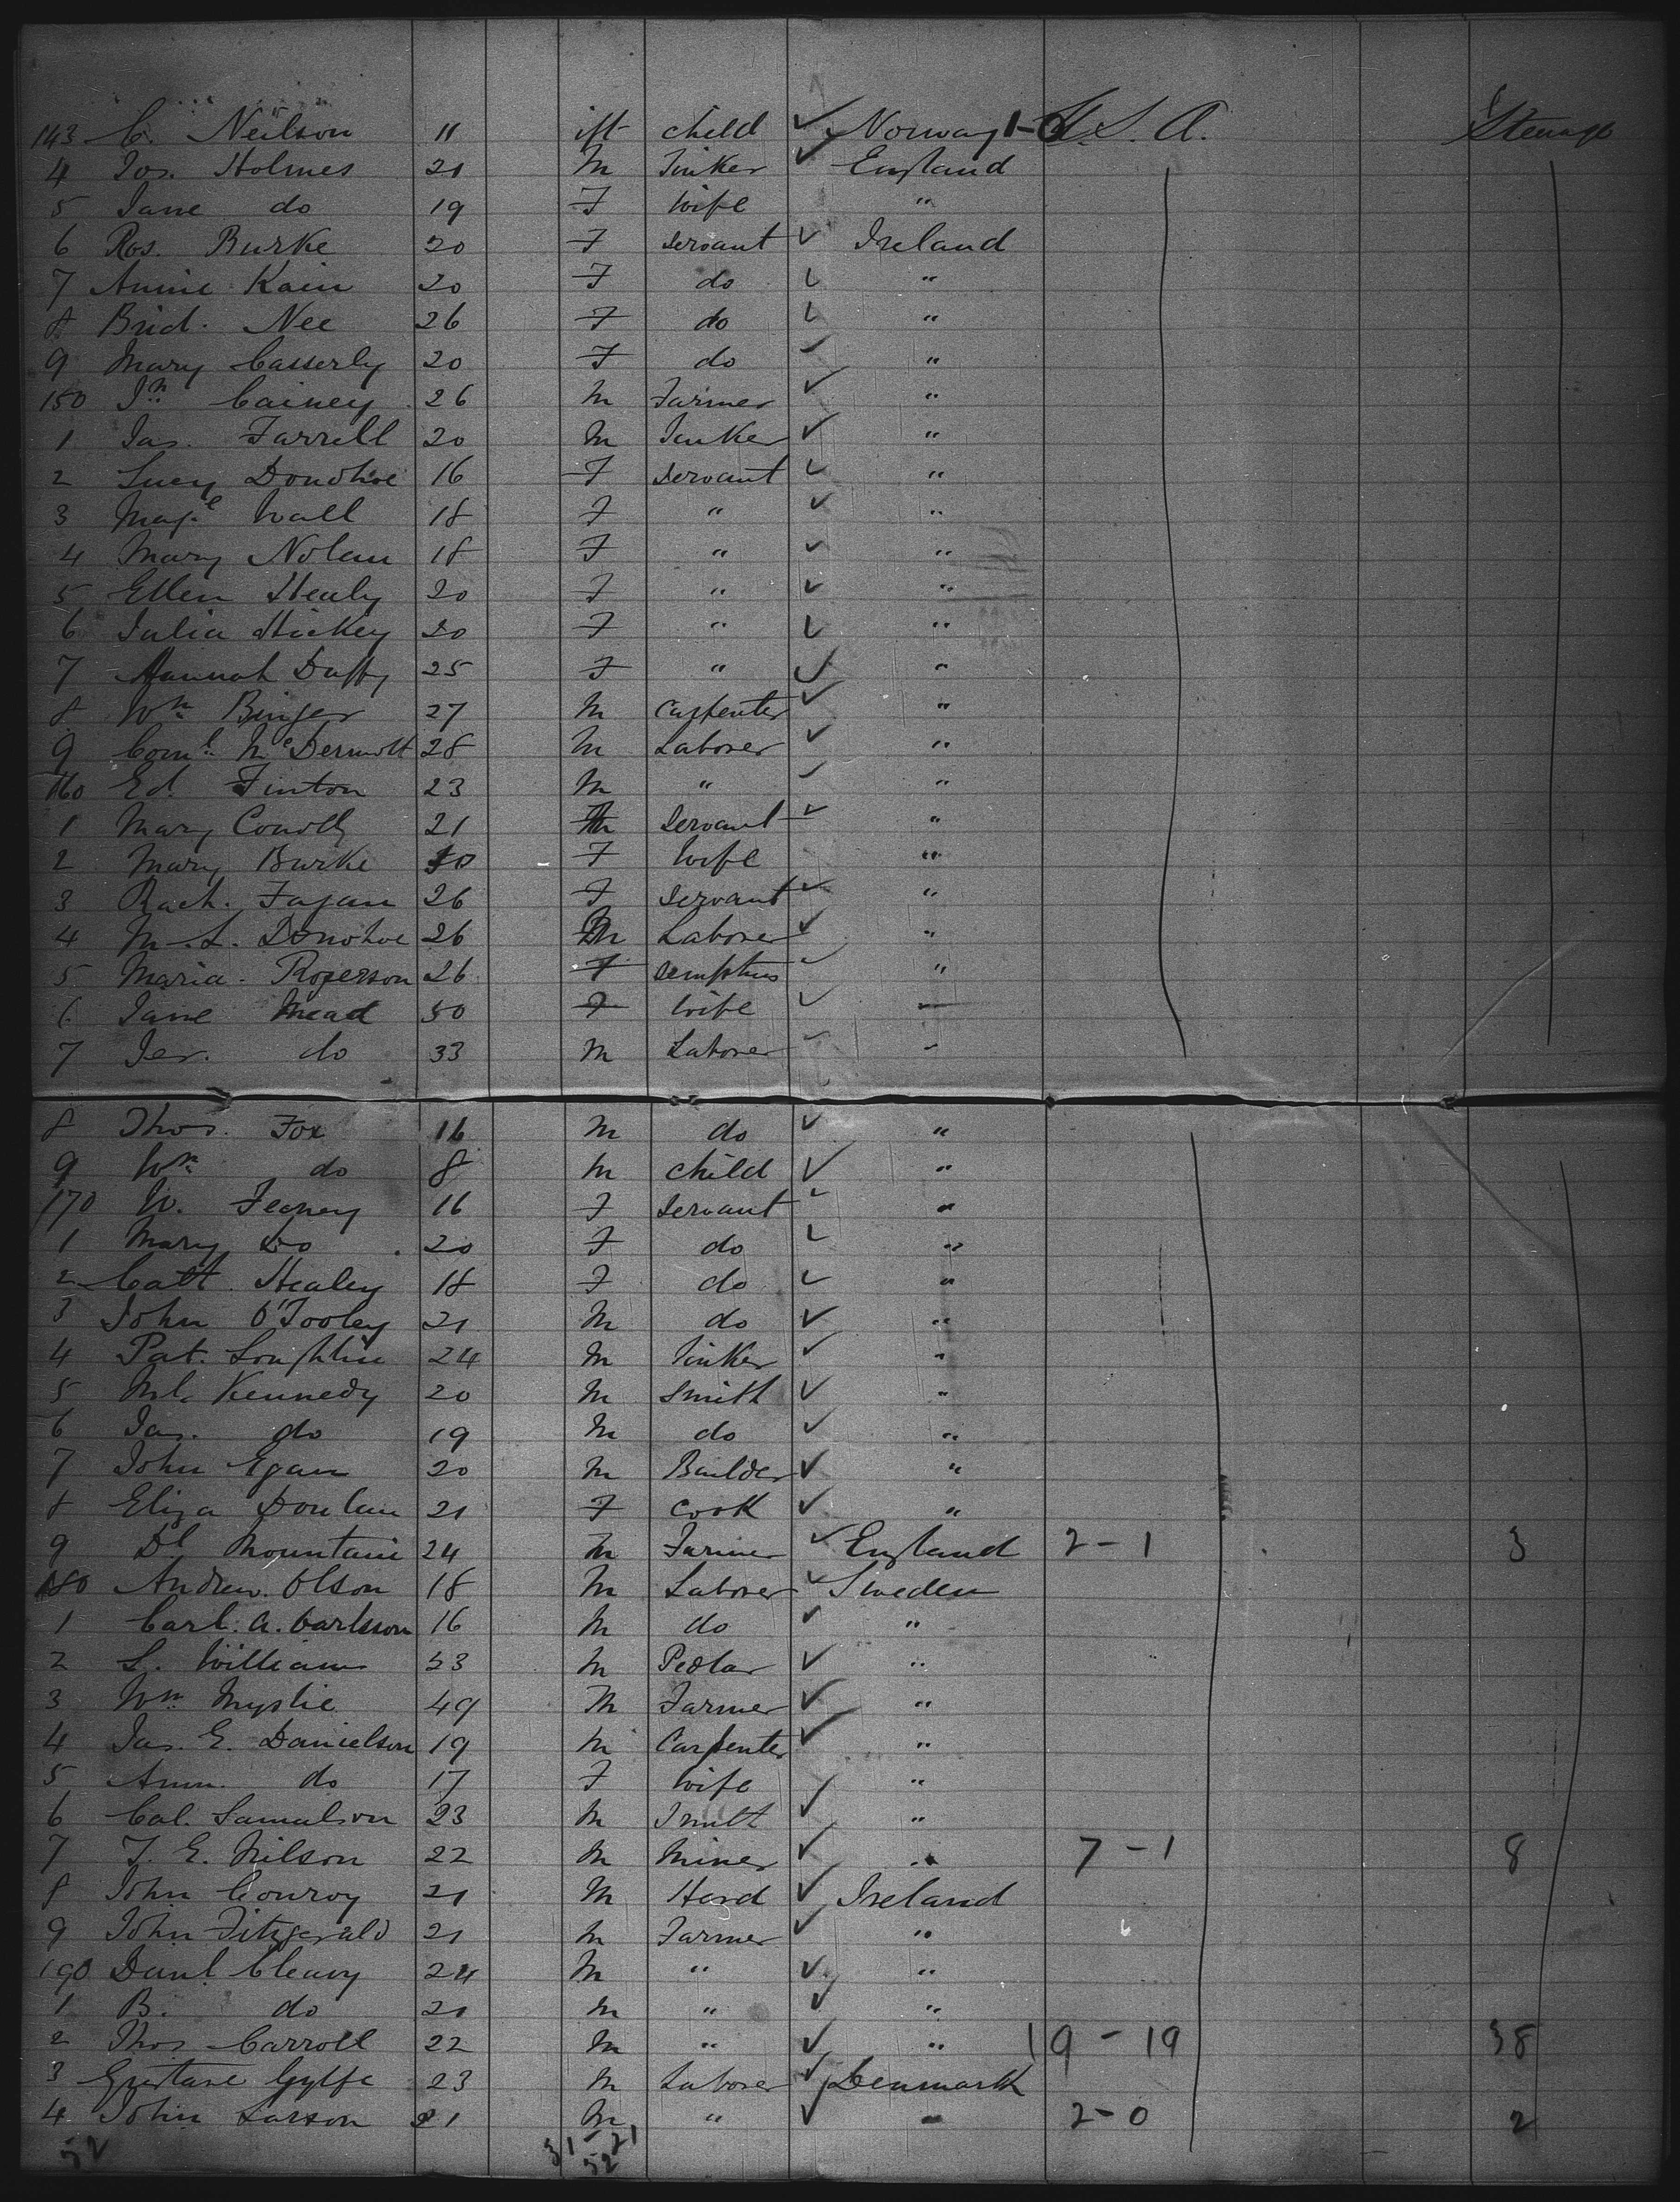 143 C. Neilson 11 child ✓ Norway 1-0 U.S.A. Steerage
4 Jos. Holmes 21 M Tinker ✓ England
5 Jane do 19 F Wife "
6 Ros. Burke 20 F Servant ✓ Ireland
7 Annie Kain 20 F do ✓ "
8 Brid. Nee 26 F do ✓ "
9 Mary Casserly 20 F do ✓ "
150 Jn Cainey 26 M Farmer ✓ "
1 Jas. Farrell 20 M Tinker ✓ "
2 Lucy Donohoe 16 F Servant ✓ "
3 Wall 18 F " ✓ "
4 Mary Nolan 18 F " ✓ "
5 Ellen Healy 20 F " ✓ "
6 Julia Hickey 20 F " ✓ "
7 Hannah Duffy 25 F " ✓ "
8 Wm Binger 27 M Carpenter ✓ "
9 McDermott 28 M Laborer ✓ "
160 Ed. Finton 23 M " ✓ "
1 Mary Conolly 21 Servant ✓ "
2 Mary Burke F Wife "
3 Rach. Fagan 26 F Servant ✓ "
4 M. L. Donohoe 26 M Laborer ✓ "
5 Maria Rogerson 26 F ✓ "
6 Jane Mead 50 F Wife ✓ "
7 Jer. do 33 M Laborer ✓ "
8 Thos. Fox 16 M do ✓ "
9 Wm do 8 M child ✓ "
170 W. Feaney 16 F Servant ✓ "
1 Mary Do 20 F do ✓ "
2 Cath. Healey 18 F do ✓ "
3 John O'Tooley 21 M do ✓ "
4 Pat. Loughlin 24 M Tinker ✓ "
5 Ml. Kennedy 20 M Smith ✓ "
6 Jas. do 19 M do ✓ "
7 John Egan 20 M Builder ✓ "
8 Eliza Donlan 21 F Cook ✓ "
9 Dl Mountain 24 M Farmer ✓ England 2-1 3
180 Andrew Olson 18 M Laborer ✓ Sweden
1 Carl. A. Carlsson 16 M do ✓ "
2 L. Williams 23 M Pedlar ✓ "
3 Wm 49 M Farmer ✓ "
4 Jas. E. Danielson 19 M Carpenter ✓ "
5 Ann. do 17 F Wife "
6 Cal. Samulson 23 M Smith ✓ "
7 T. E. Nilson 22 M Miner ✓ " 7-1 8
8 John Conroy 21 M Herd ✓ Ireland
9 John Fitzgerald 21 M Farmer ✓ "
190 Danl. Cleary 24 M " ✓ "
1 B. do 21 M " ✓ "
2 Thos Carroll 22 M " ✓ " 19-19 38
3 Gustave Gylfe 23 M Laborer ✓ Denmark
4 John Larson 21 M " ✓ " 2-0 2
52 31-21
52